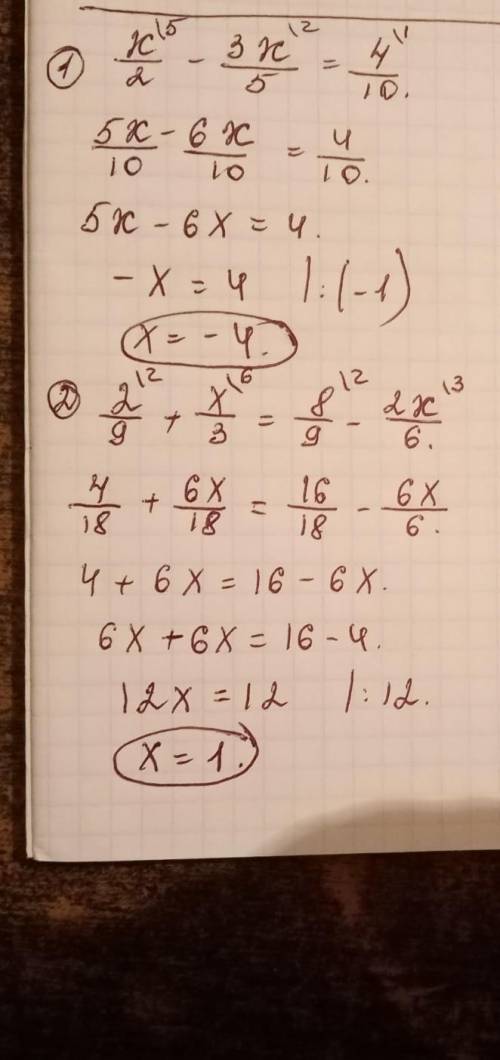 ① x\5/2 - 3x\2/5 = 4\1/10.
5x/10 - 6x/10 = 4/10.
5x - 6x = 4.
- x = 4 | : (-1)
x = - 4.
② 2\2/9 + x\6/3 = 8\2/9 - 2x\3/6.
4/18 + 6x/18 = 16/18 - 6x/6.
4 + 6x = 16 - 6x.
6x + 6x = 16 - 4.
12x = 12 | : 12.
x = 1.